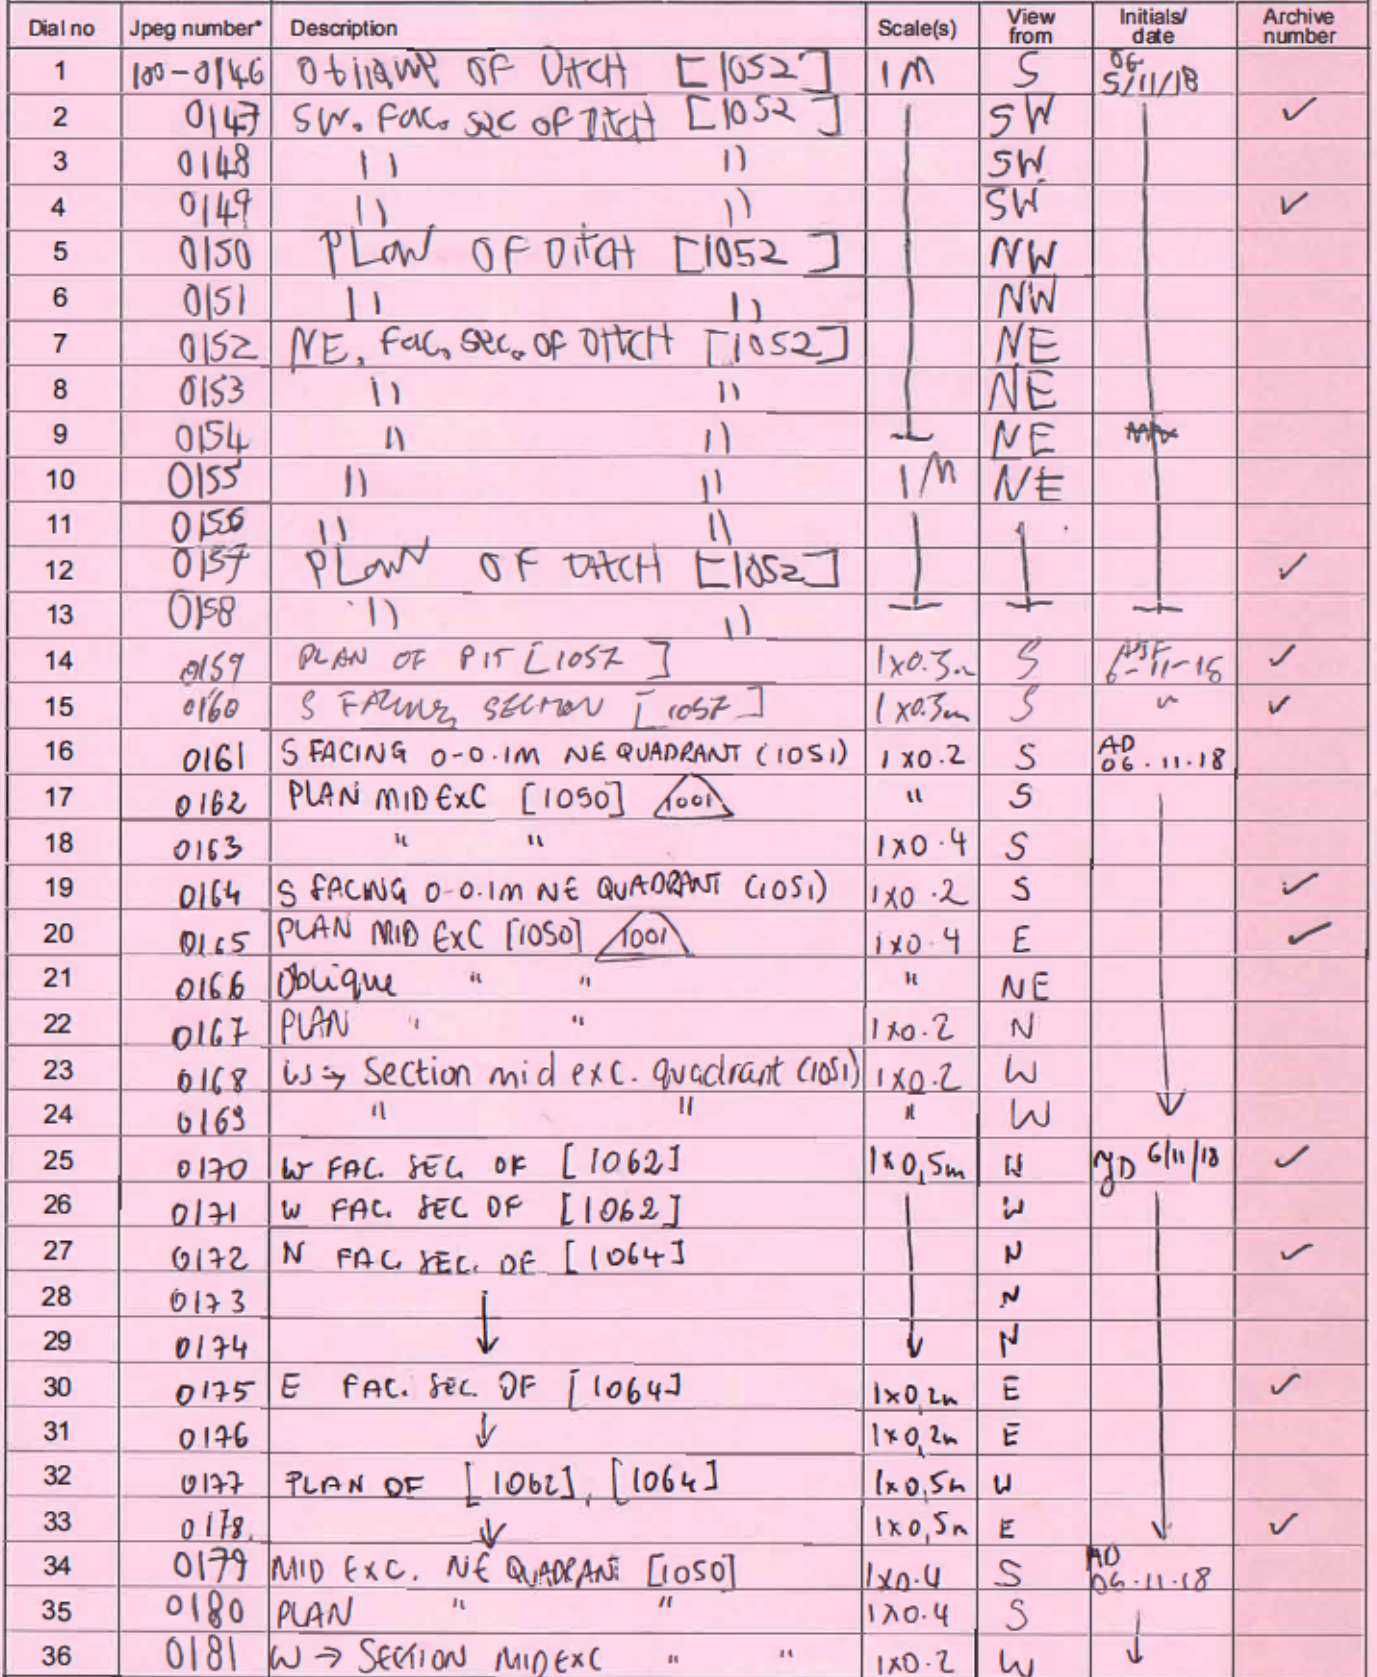 Dial no Jpeg number* Description Scale(s) View from Initials/ date Archive number
1 100-0146 Oblique OF DITCH [1052] 1M S OG 5/11/18
2 0147 SW. Fac. sec OF DITCH [1052] SW ✓
3 0148 " " SW
4 0149 " " SW ✓
5 0150 PLAN OF DITCH [1052] NW
6 0151 " " NW
7 0152 NE. Fac. Sec. OF DITCH [1052] NE
8 0153 " " NE
9 0154 " " NE
10 0155 " " 1M NE
11 0156 " "
12 0157 PLAN OF DITCH [1052] ✓
13 0158 " "
14 0159 PLAN OF PIT [1057] 1x0.3m S 6-11-18 ✓
15 0160 S FACING SECTION [1057] 1x0.3m S " ✓
16 0161 S FACING 0-0.1M NE QUADRANT (1051) 1x0.2 S AD 06.11.18
17 0162 PLAN MID EXC [1050] 1001 " S
18 0163 " " 1x0.4 S
19 0164 S FACING 0-0.1M NE QUADRANT (1051) 1x0.2 S ✓
20 0165 PLAN MID EXC [1050] 1001 1x0.4 E ✓
21 0166 Oblique " " " NE
22 0167 PLAN " " 1x0.2 N
23 0168 W → Section mid exc. quadrant (1051) 1x0.2 W
24 0169 " " " W
25 0170 W FAC. SEC. OF [1062] 1x0,5m W JD 6/11/18 ✓
26 0171 W FAC. SEC OF [1062] ↓ W
27 0172 N FAC. SEC. OF [1064] N ✓
28 0173 ↓ N
29 0174 N
30 0175 E FAC. SEC. OF [1064] 1x0,2m E ✓
31 0176 ↓ 1x0,2m E
32 0177 PLAN OF [1062], [1064] 1x0,5m W
33 0178. ↓ 1x0,5m E ✓
34 0179 MID EXC. NE QUADRANT [1050] 1x0.4 S AD 06.11.18
35 0180 PLAN " " 1x0.4 S ↓
36 0181 W → SECTION MID EXC " " 1x0.2 W